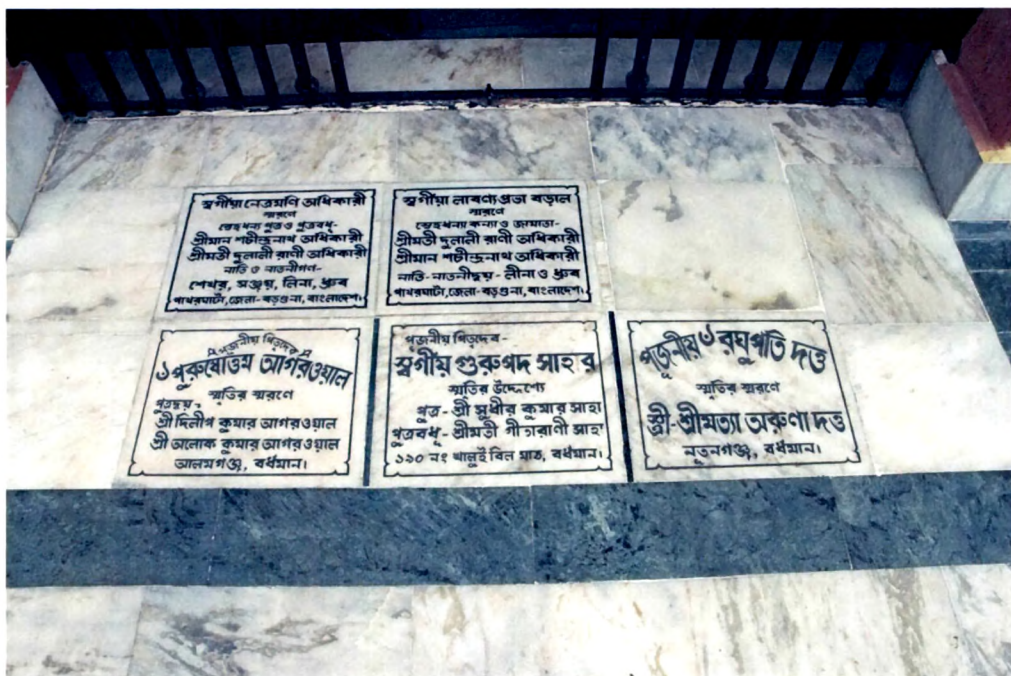 স্বর্গীয়া নেত্রমণি অধিকারী
স্মরণে
স্নেহধন্য পুত্র ও পুত্রবধূ-
শ্রীমান শচীন্দ্রনাথ অধিকারী
শ্রীমতী দুলালী রাণী অধিকারী
নাতি ও নাতনীগণ-
শেখর, সঞ্জয়, লিনা, ধ্রুব
পাথরঘাটা, জেলা-বড়গুনা, বাংলাদেশ।
স্বর্গীয়া লাবণ্যপ্রভা বড়াল
স্মরণে
স্নেহধন্যা কন্যা ও জামাতা-
শ্রীমতী দুলালী রাণী অধিকারী
শ্রীমান শচীন্দ্রনাথ অধিকারী
নাতি-নাতনীদ্বয়-লীনা ও ধ্রুব
পাথরঘাটা, জেলা-বড়গুনা, বাংলাদেশ।
পূজনীয় পিতৃদেব
৺পুরুষোত্তম আগরওয়াল
স্মৃতির স্মরণে
পুত্রদ্বয়,
শ্রী দিলীপ কুমার আগরওয়াল
শ্রী অলোক কুমার আগরওয়াল
আলমগঞ্জ, বর্ধমান।
পূজনীয় পিতৃদেব-
স্বর্গীয় গুরুপদ সাহার
স্মৃতির উদ্দেশ্যে
পুত্র-শ্রী সুধীর কুমার সাহা
পুত্রবধূ-শ্রীমতী গীতারাণী সাহা
১১০ নং খালুইবিল মাঠ, বর্ধমান।
পূজনীয় ৺রঘুপতি দত্ত
স্মৃতির স্মরণে
স্ত্রী-শ্রীমত্যা অরুণা দত্ত
নূতনগঞ্জ, বর্ধমান।